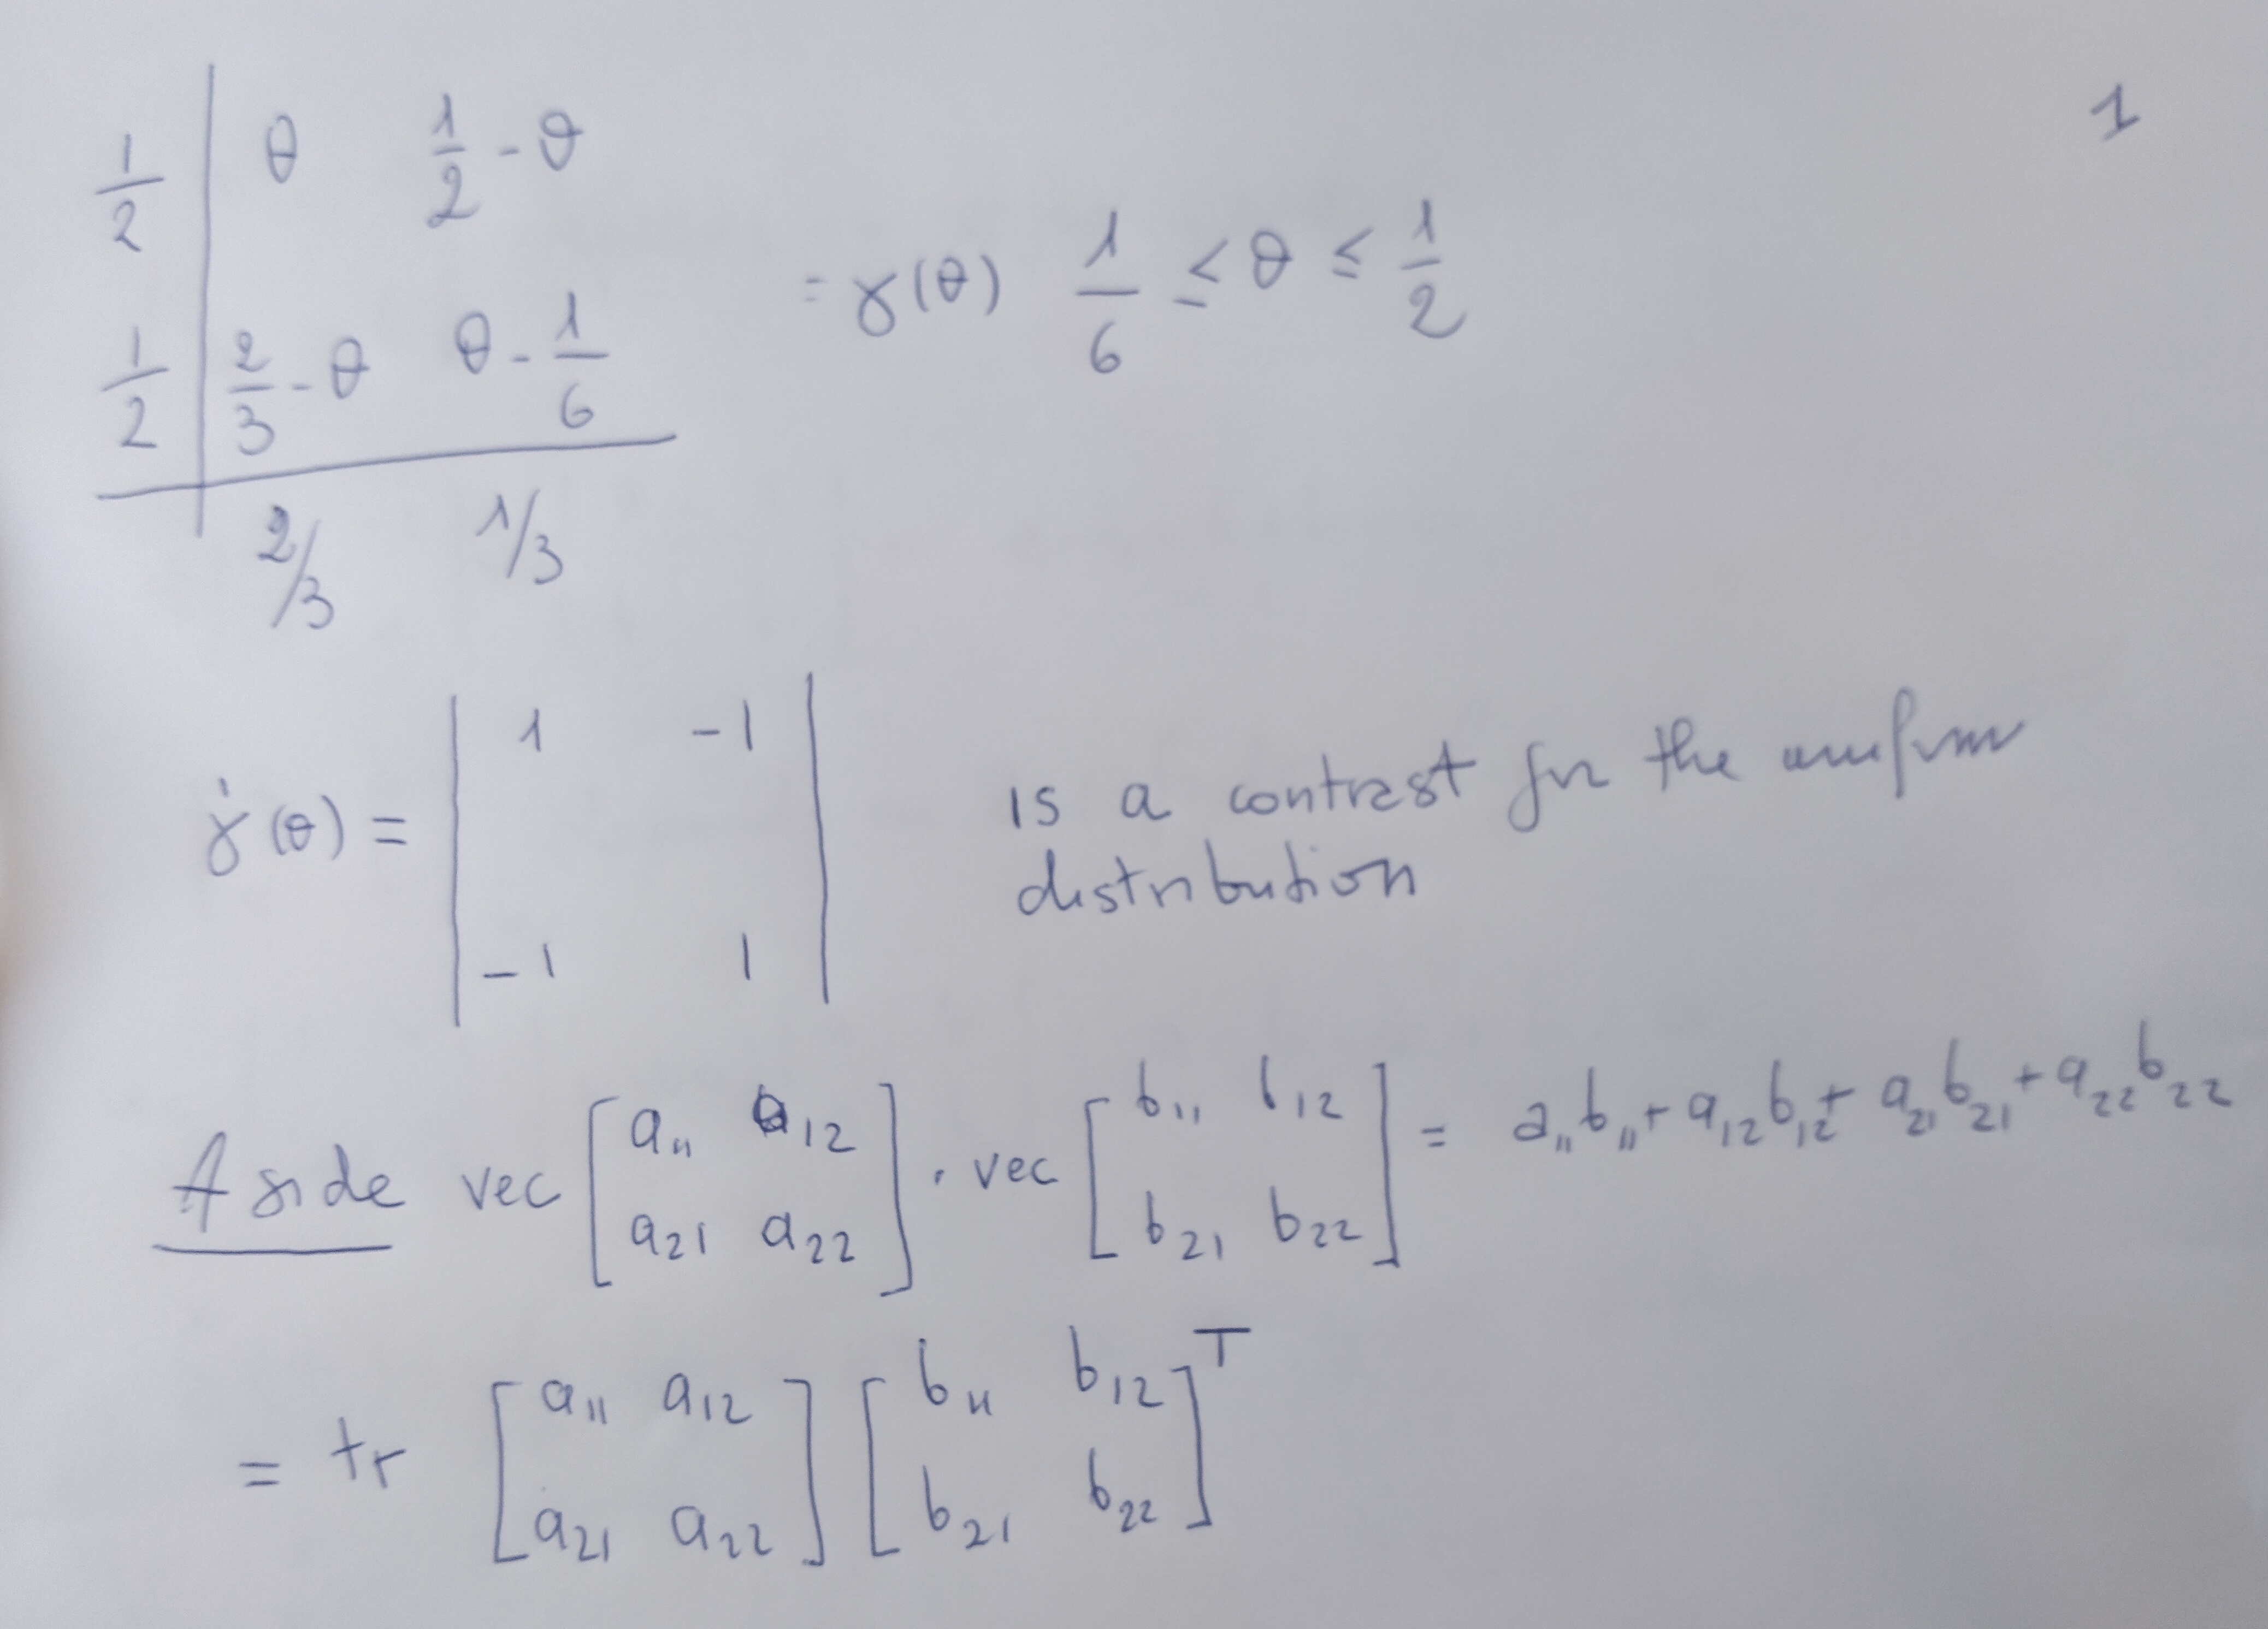 1
1/2 | θ 1/2 - θ
= γ(θ) 1/6 ≤ θ ≤ 1/2
1/2 | 2/3 - θ θ - 1/6
2/3 1/3
γ̇(θ) = | 1 -1 |
| -1 1 |
is a contrast for the uniform
distribution
Aside vec [ a11 a12 ; a21 a22 ] · vec [ b11 b12 ; b21 b22 ] = a11b11 + a12b12 + a21b21 + a22b22
= tr [ a11 a12 ; a21 a22 ] [ b11 b12 ; b21 b22 ]^T